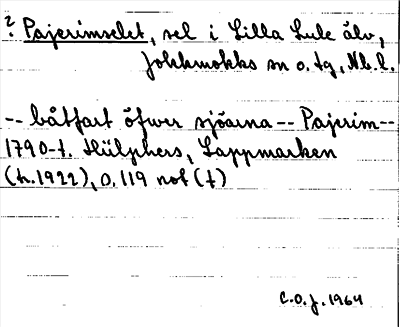 ? Pajerimselet, sel i Lilla Lule älv,
Jokkmokks sn o. tg, Nb. l.
-- båtfart öfwer sjöarna -- Pajerim --
1790-t. Hülphers, Lappmarken
(tr. 1922), s. 119 not (t)
C.O.J. 1964